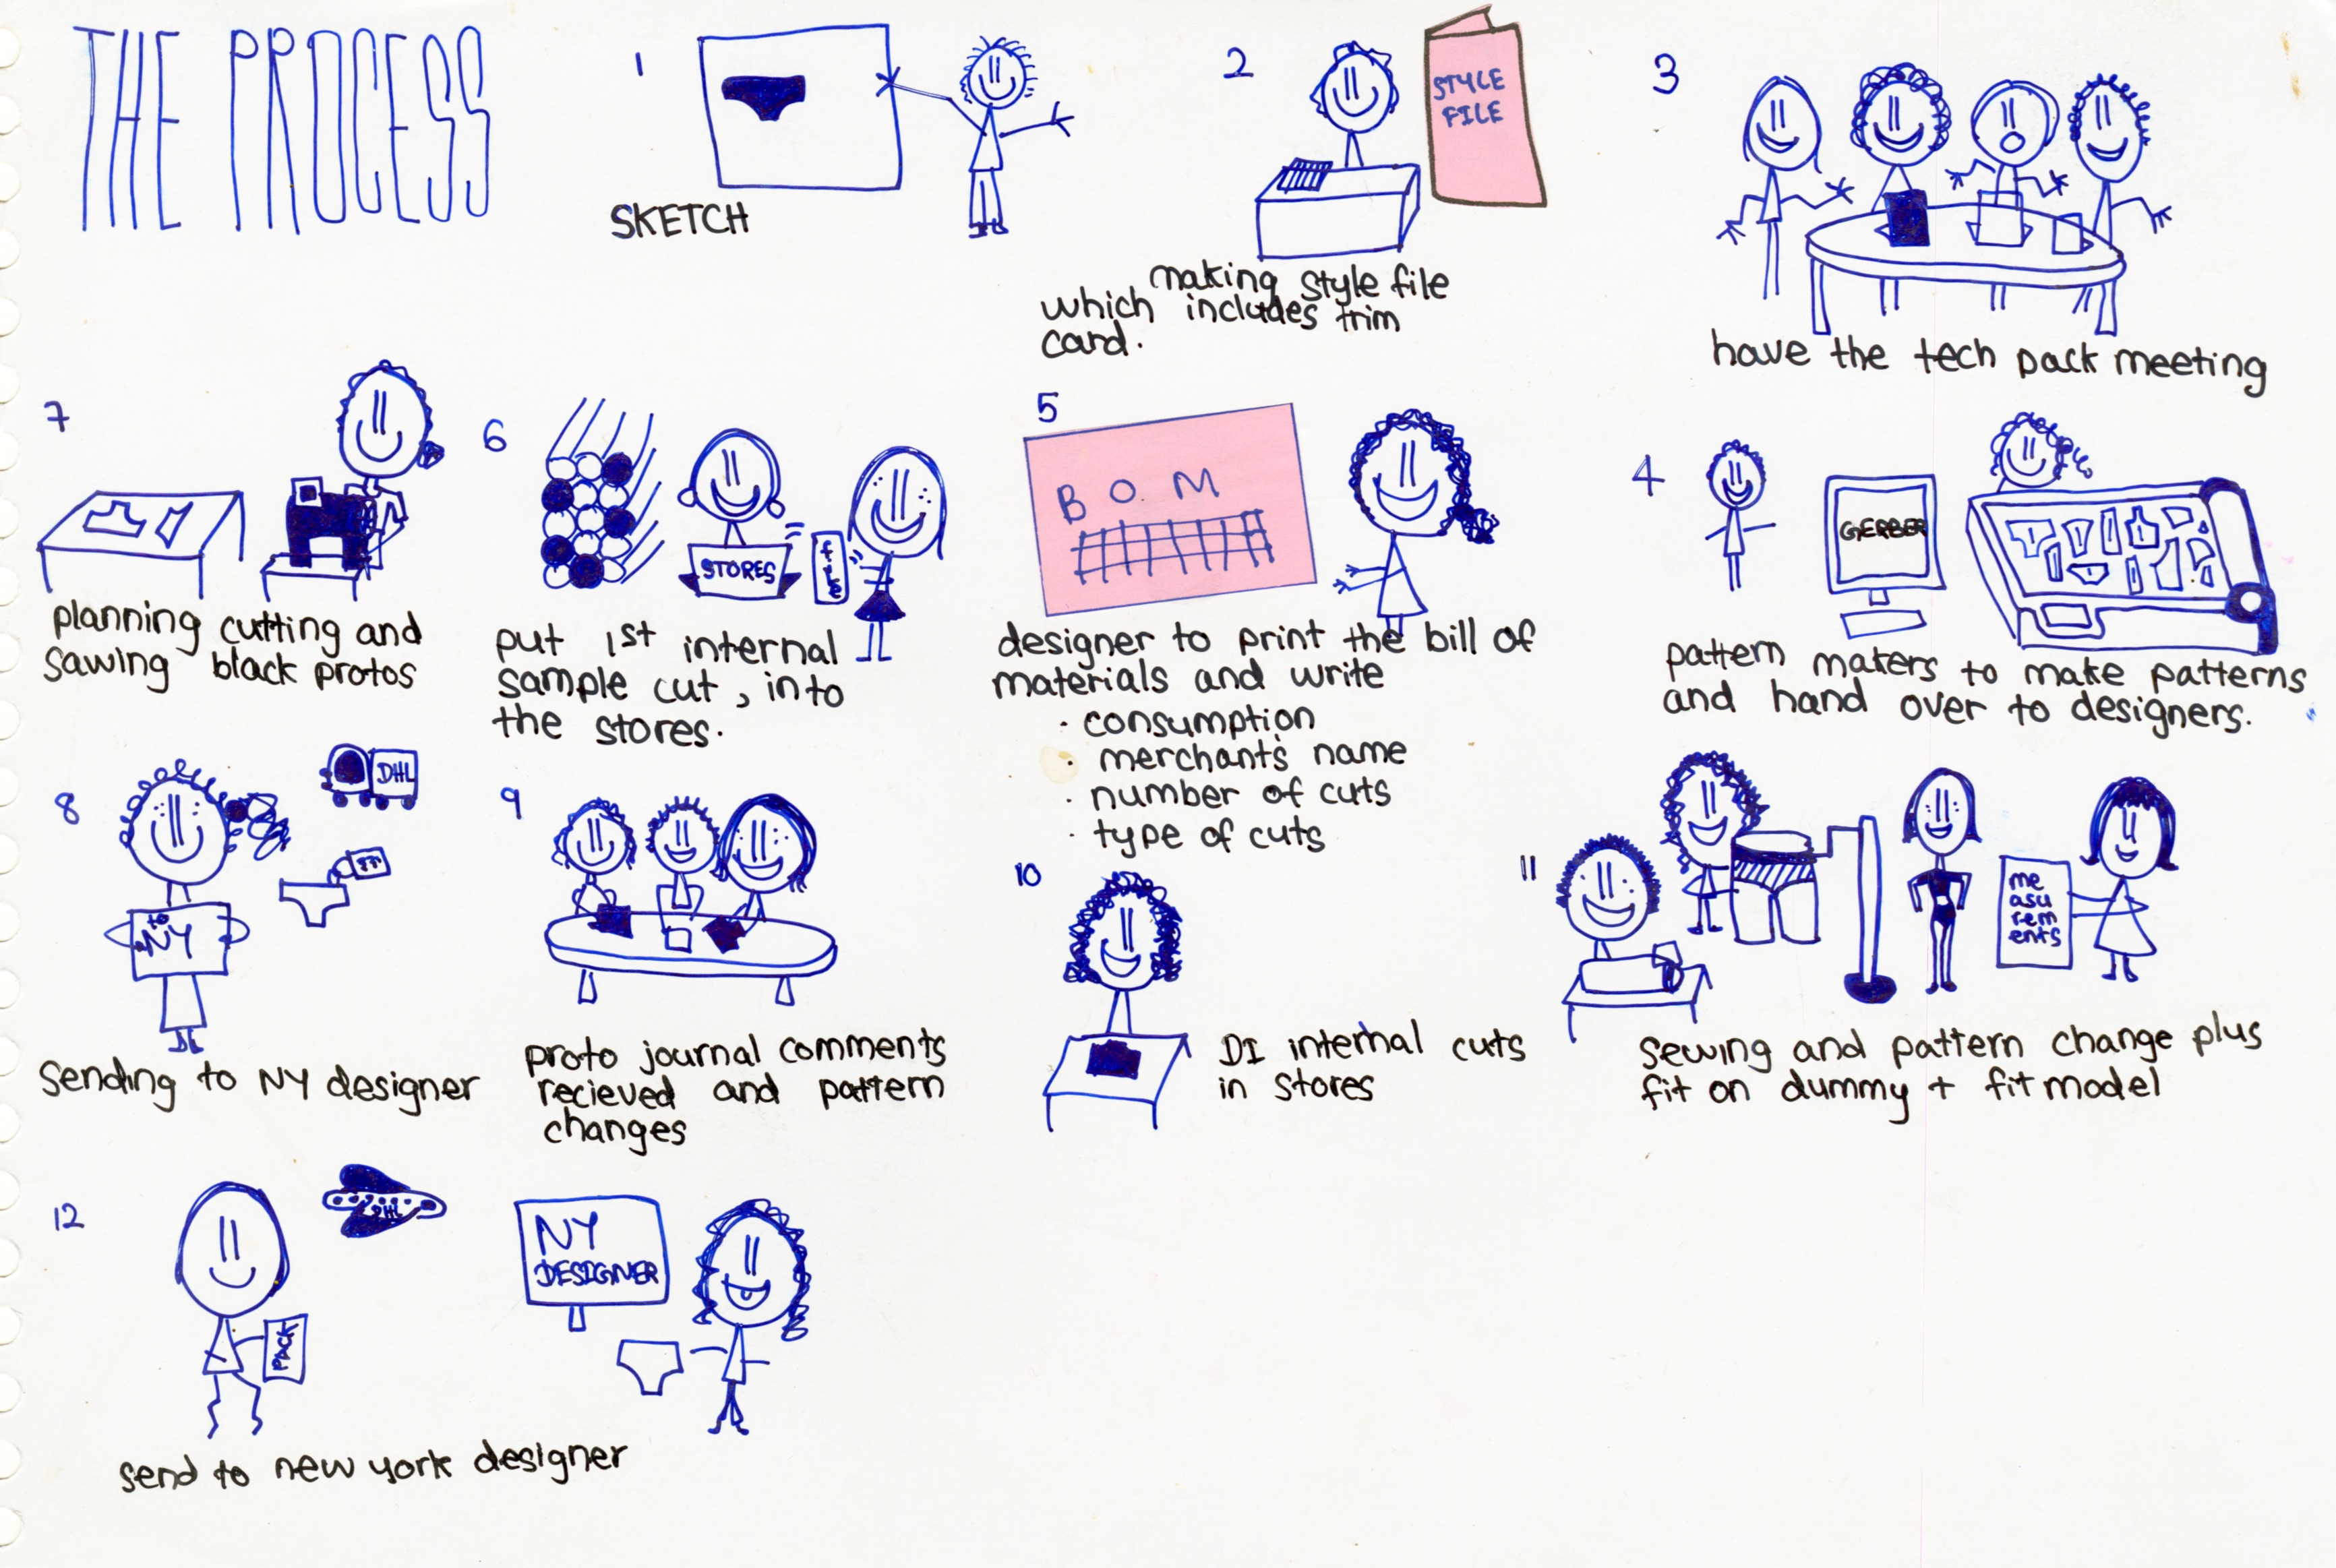 THE PROCESS
1
SKETCH
2
STYLE
FILE
making style file
which includes trim
card.
3
have the tech pack meeting
4
GERBER
pattern makers to make patterns
and hand over to designers.
5
B O M
designer to print the bill of
materials and write
· consumption
· merchants name
· number of cuts
· type of cuts
6
STORES
file
put 1st internal
sample cut, into
the stores.
7
planning cutting and
sawing black protos
8
DHL
to
NY
sending to NY designer
9
proto journal comments
recieved and pattern
changes
10
DI internal cuts
in stores
11
me
asu
rem
ents
sewing and pattern change plus
fit on dummy + fit model
12
DHL
PACK
NY
DESIGNER
send to new york designer